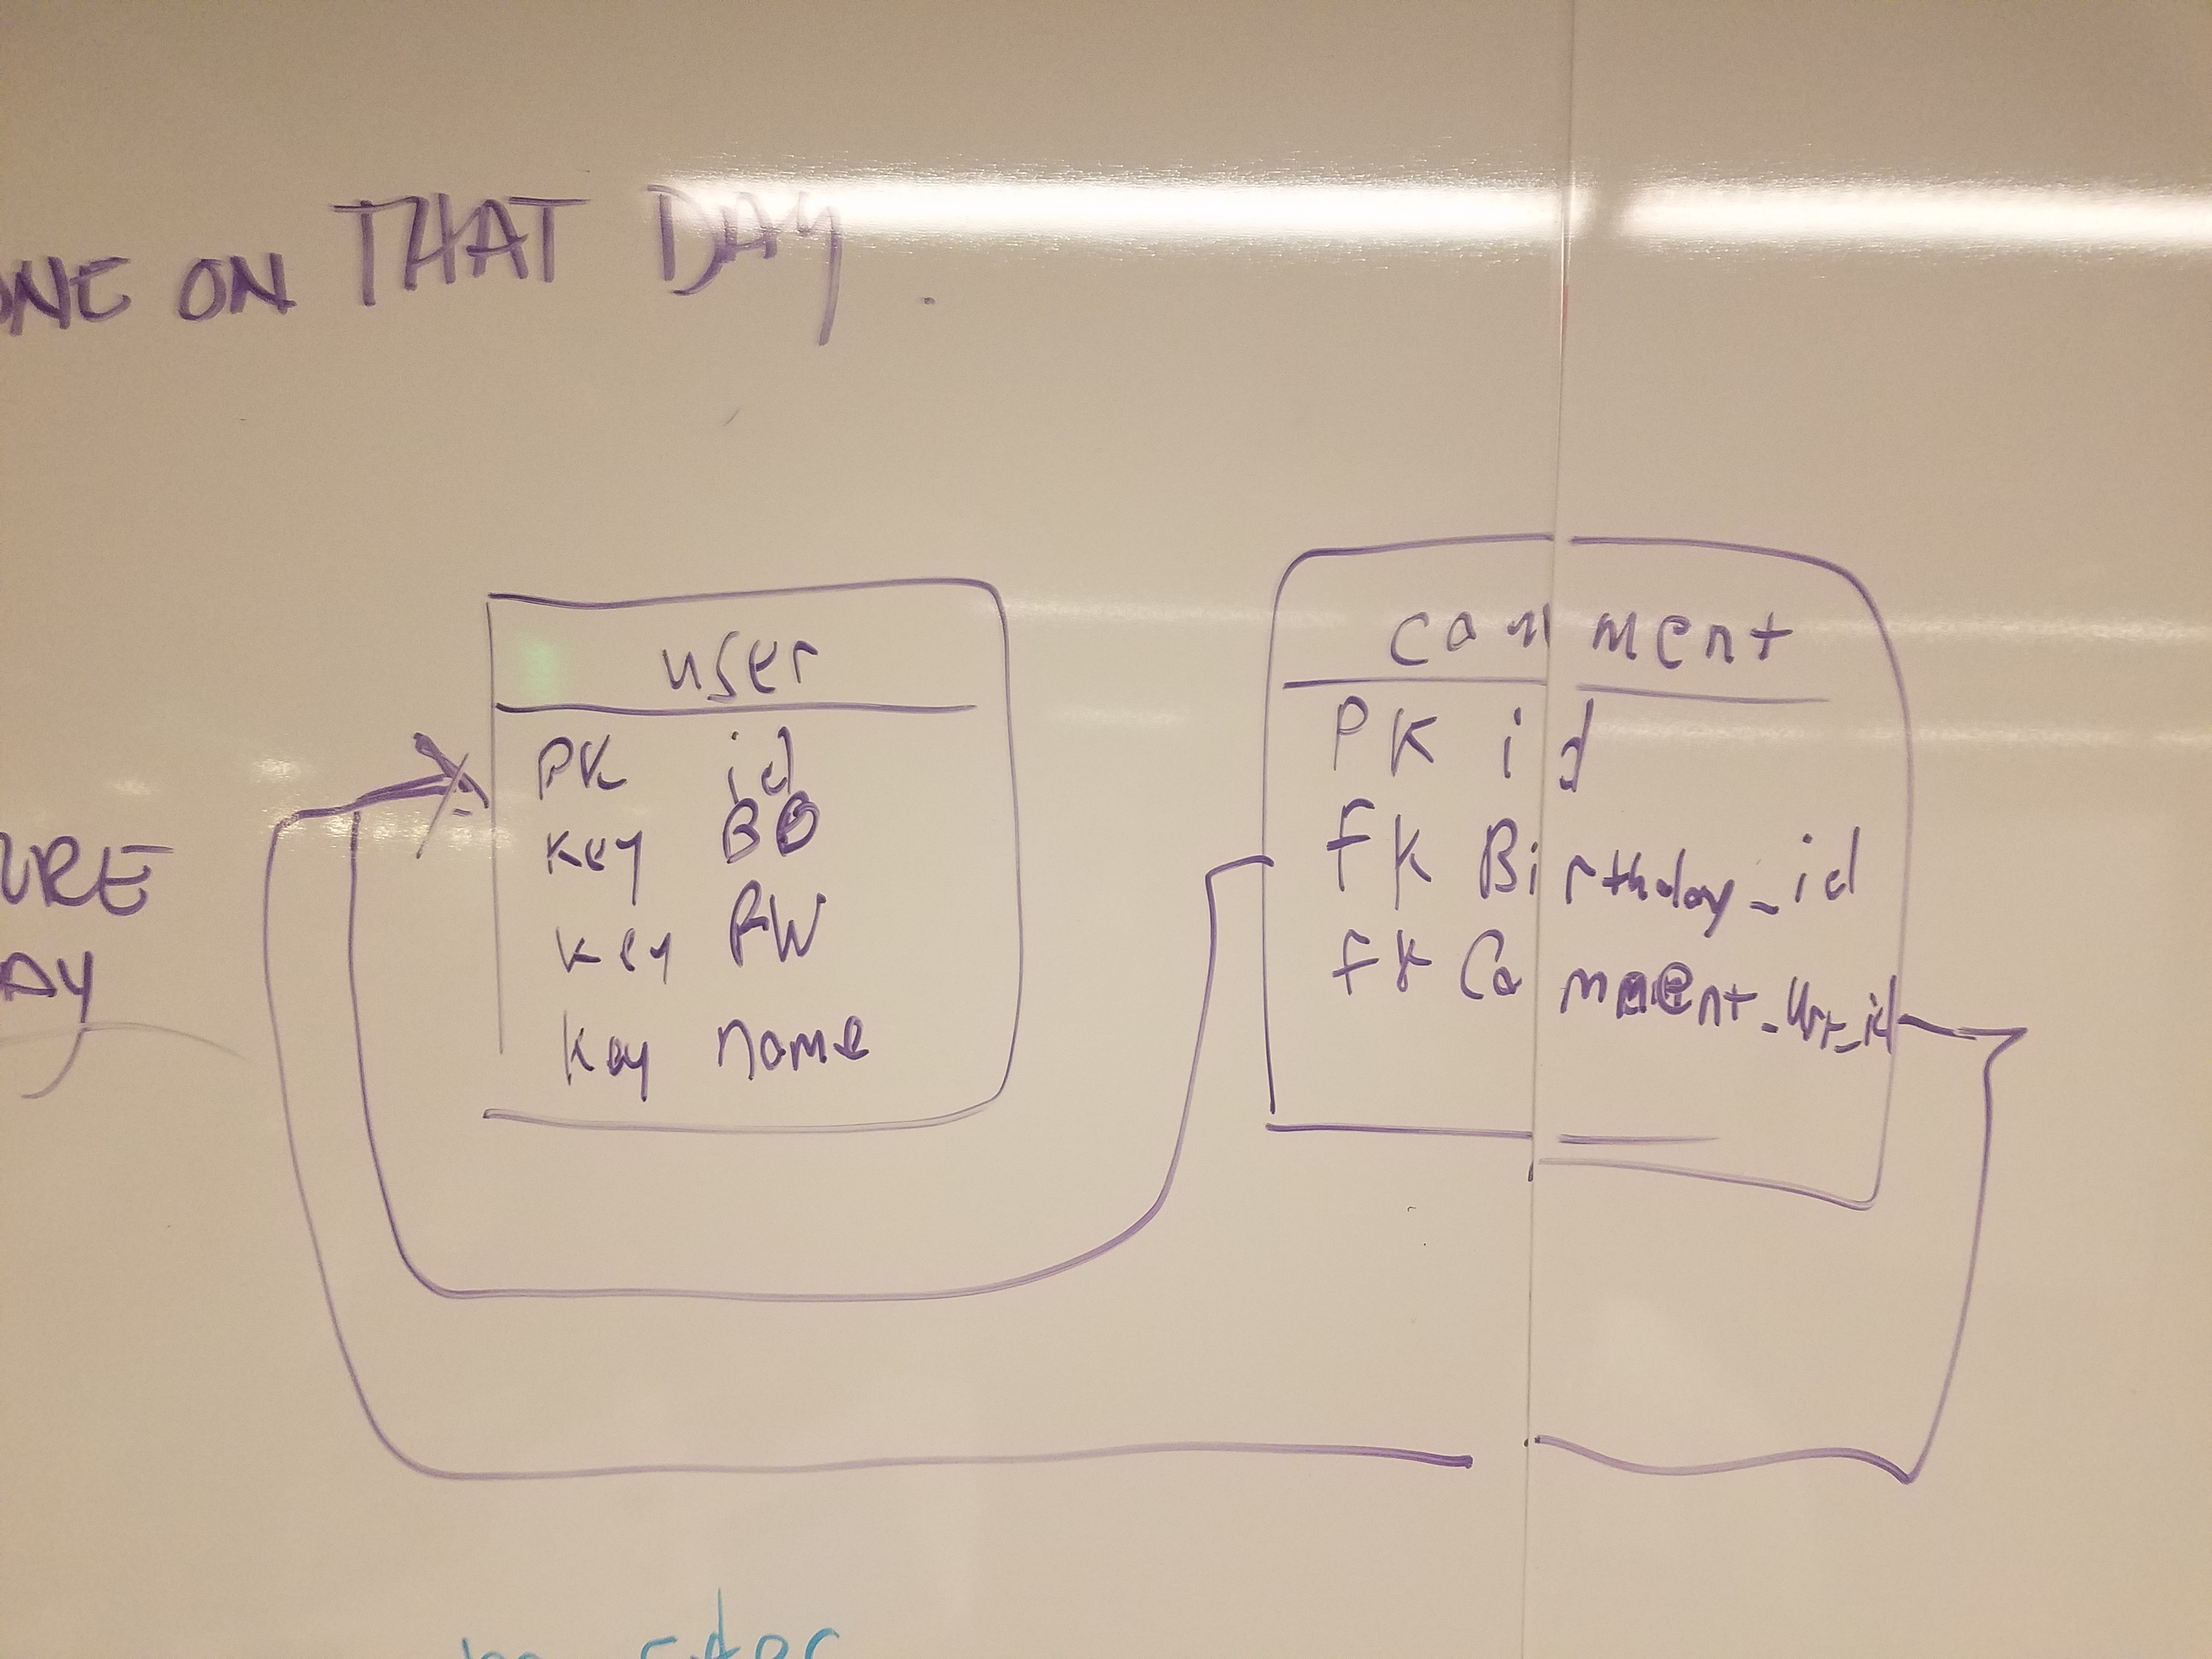 ONE ON THAT DAY.
user
PK id
Key BD
Key PW
Key name
comment
PK id
FK Birthday_id
FK Comment_Wr_id
URE
DAY